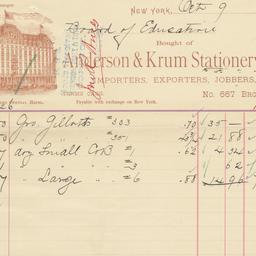 NEW YORK, Oct 9
Board of Education
Bought of
Anderson & Krum Stationery
IMPORTERS, EXPORTERS, JOBBERS,
TERMS CASH. No. 667 BRO
CENTRAL HOTEL. Payable with exchange on New York.
26
Gro. Gillotts #303 .70 35 —
351 21 88
doz Small C&B #1 .62 4 34
" " #3 62
" Large " #6 .88 14 96